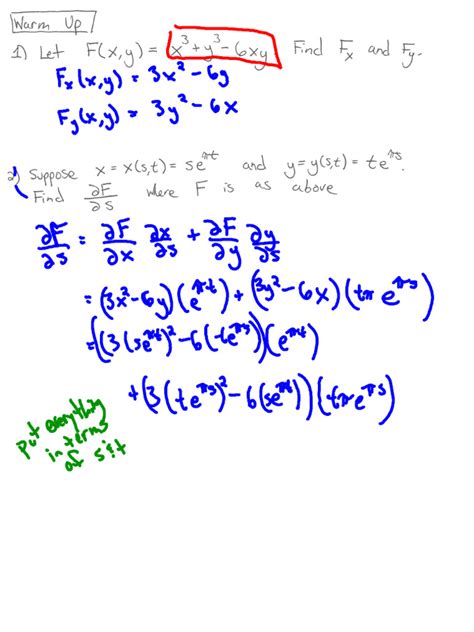 Warm Up
1) Let F(x,y) = x³+y³-6xy Find Fx and Fy.
Fx(x,y) = 3x²-6y
Fy(x,y) = 3y²-6x
2) Suppose x = x(s,t) = se^πt and y=y(s,t) = te^πs.
Find ∂F/∂s where F is as above
∂F/∂s = ∂F/∂x ∂x/∂s + ∂F/∂y ∂y/∂s
= (3x²-6y)(e^πt) + (3y²-6x)(tπ e^πs)
= ((3(se^πt)²-6(te^πs))(e^πt)
+(3(te^πs)²-6(se^πt))(tπe^πs)
put everything
in terms
of s & t